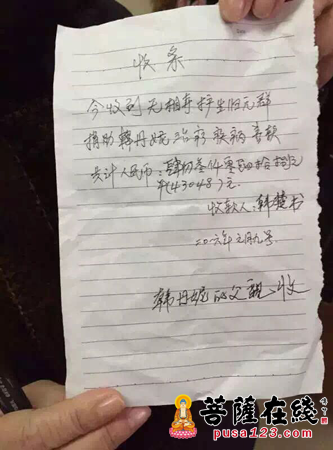 收条
今收到无相寺护生归元群
捐助韩丹妮治病善款
共计人民币：肆万叁仟零肆拾捌元
(43048)元
收款人：韩楚书
二〇一六年元月九号
韩丹妮的父亲收
菩薩在线
pusa123.com